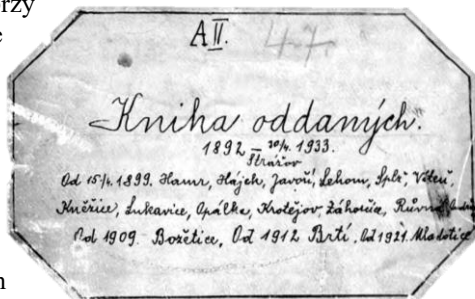 erzy
e
A II. 47.
Kniha oddaných.
1892 – 30/4. 1933.
Strážov
Od 15/4. 1899. Hamr, Hájek, Javoří, Lehom, Splž, Viteň
Kněžice, Lukavice, Opálka, Krotějov, Záhorčia,
Od 1909. Božětice, Od 1912 Brtí, Od 1921. Mladotice
m